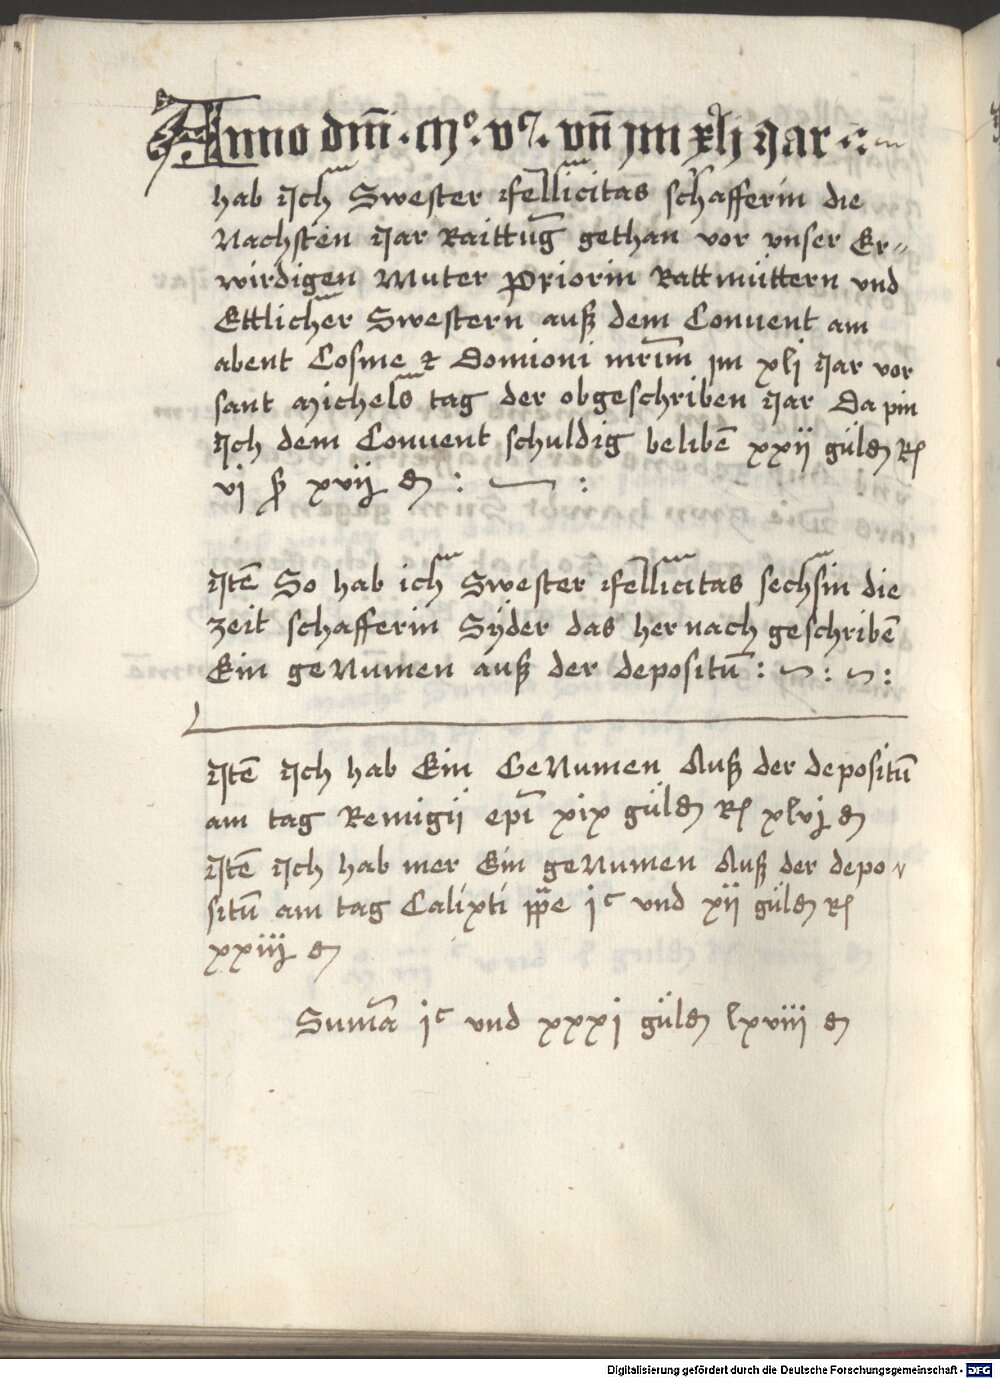 Anno dm̄ · m° · vc · vn̄ im xlj Jar
hab Jch Swester ffellicitas schafferin die
Nachsten Jar Raittūg gethan vor vnser Er„
wirdigen Muter Priorin Rattmüttern vnd
Ettlicher Swestern auß dem Conuent am
abent Cosme et Domioni mrīm im xlj Jar vor
sant Michels tag der obgeschriben Jar Da pin
Jch dem Conuent schuldig belibē xxij güld Rl
vj ß xvij d : — :
Jtē So hab ich Swester ffellicitas sechsin die
zeit schafferin Syder das her nach geschribē
Ein geNumen auß der depositū : ~ : ~ :
Jtē Jch hab Ein GeNumen Auß der depositū
am tag Remigij epī xix güld Rl xlvj d
Jtē Jch hab mer Ein geNumen Auß der depo
sitū am tag Calixti ppe jc vnd xij güld Rl
xxiij d
Sumā jc vnd xxxj güld lxviii d
Digitalisierung gefördert durch die Deutsche Forschungsgemeinschaft - DFG